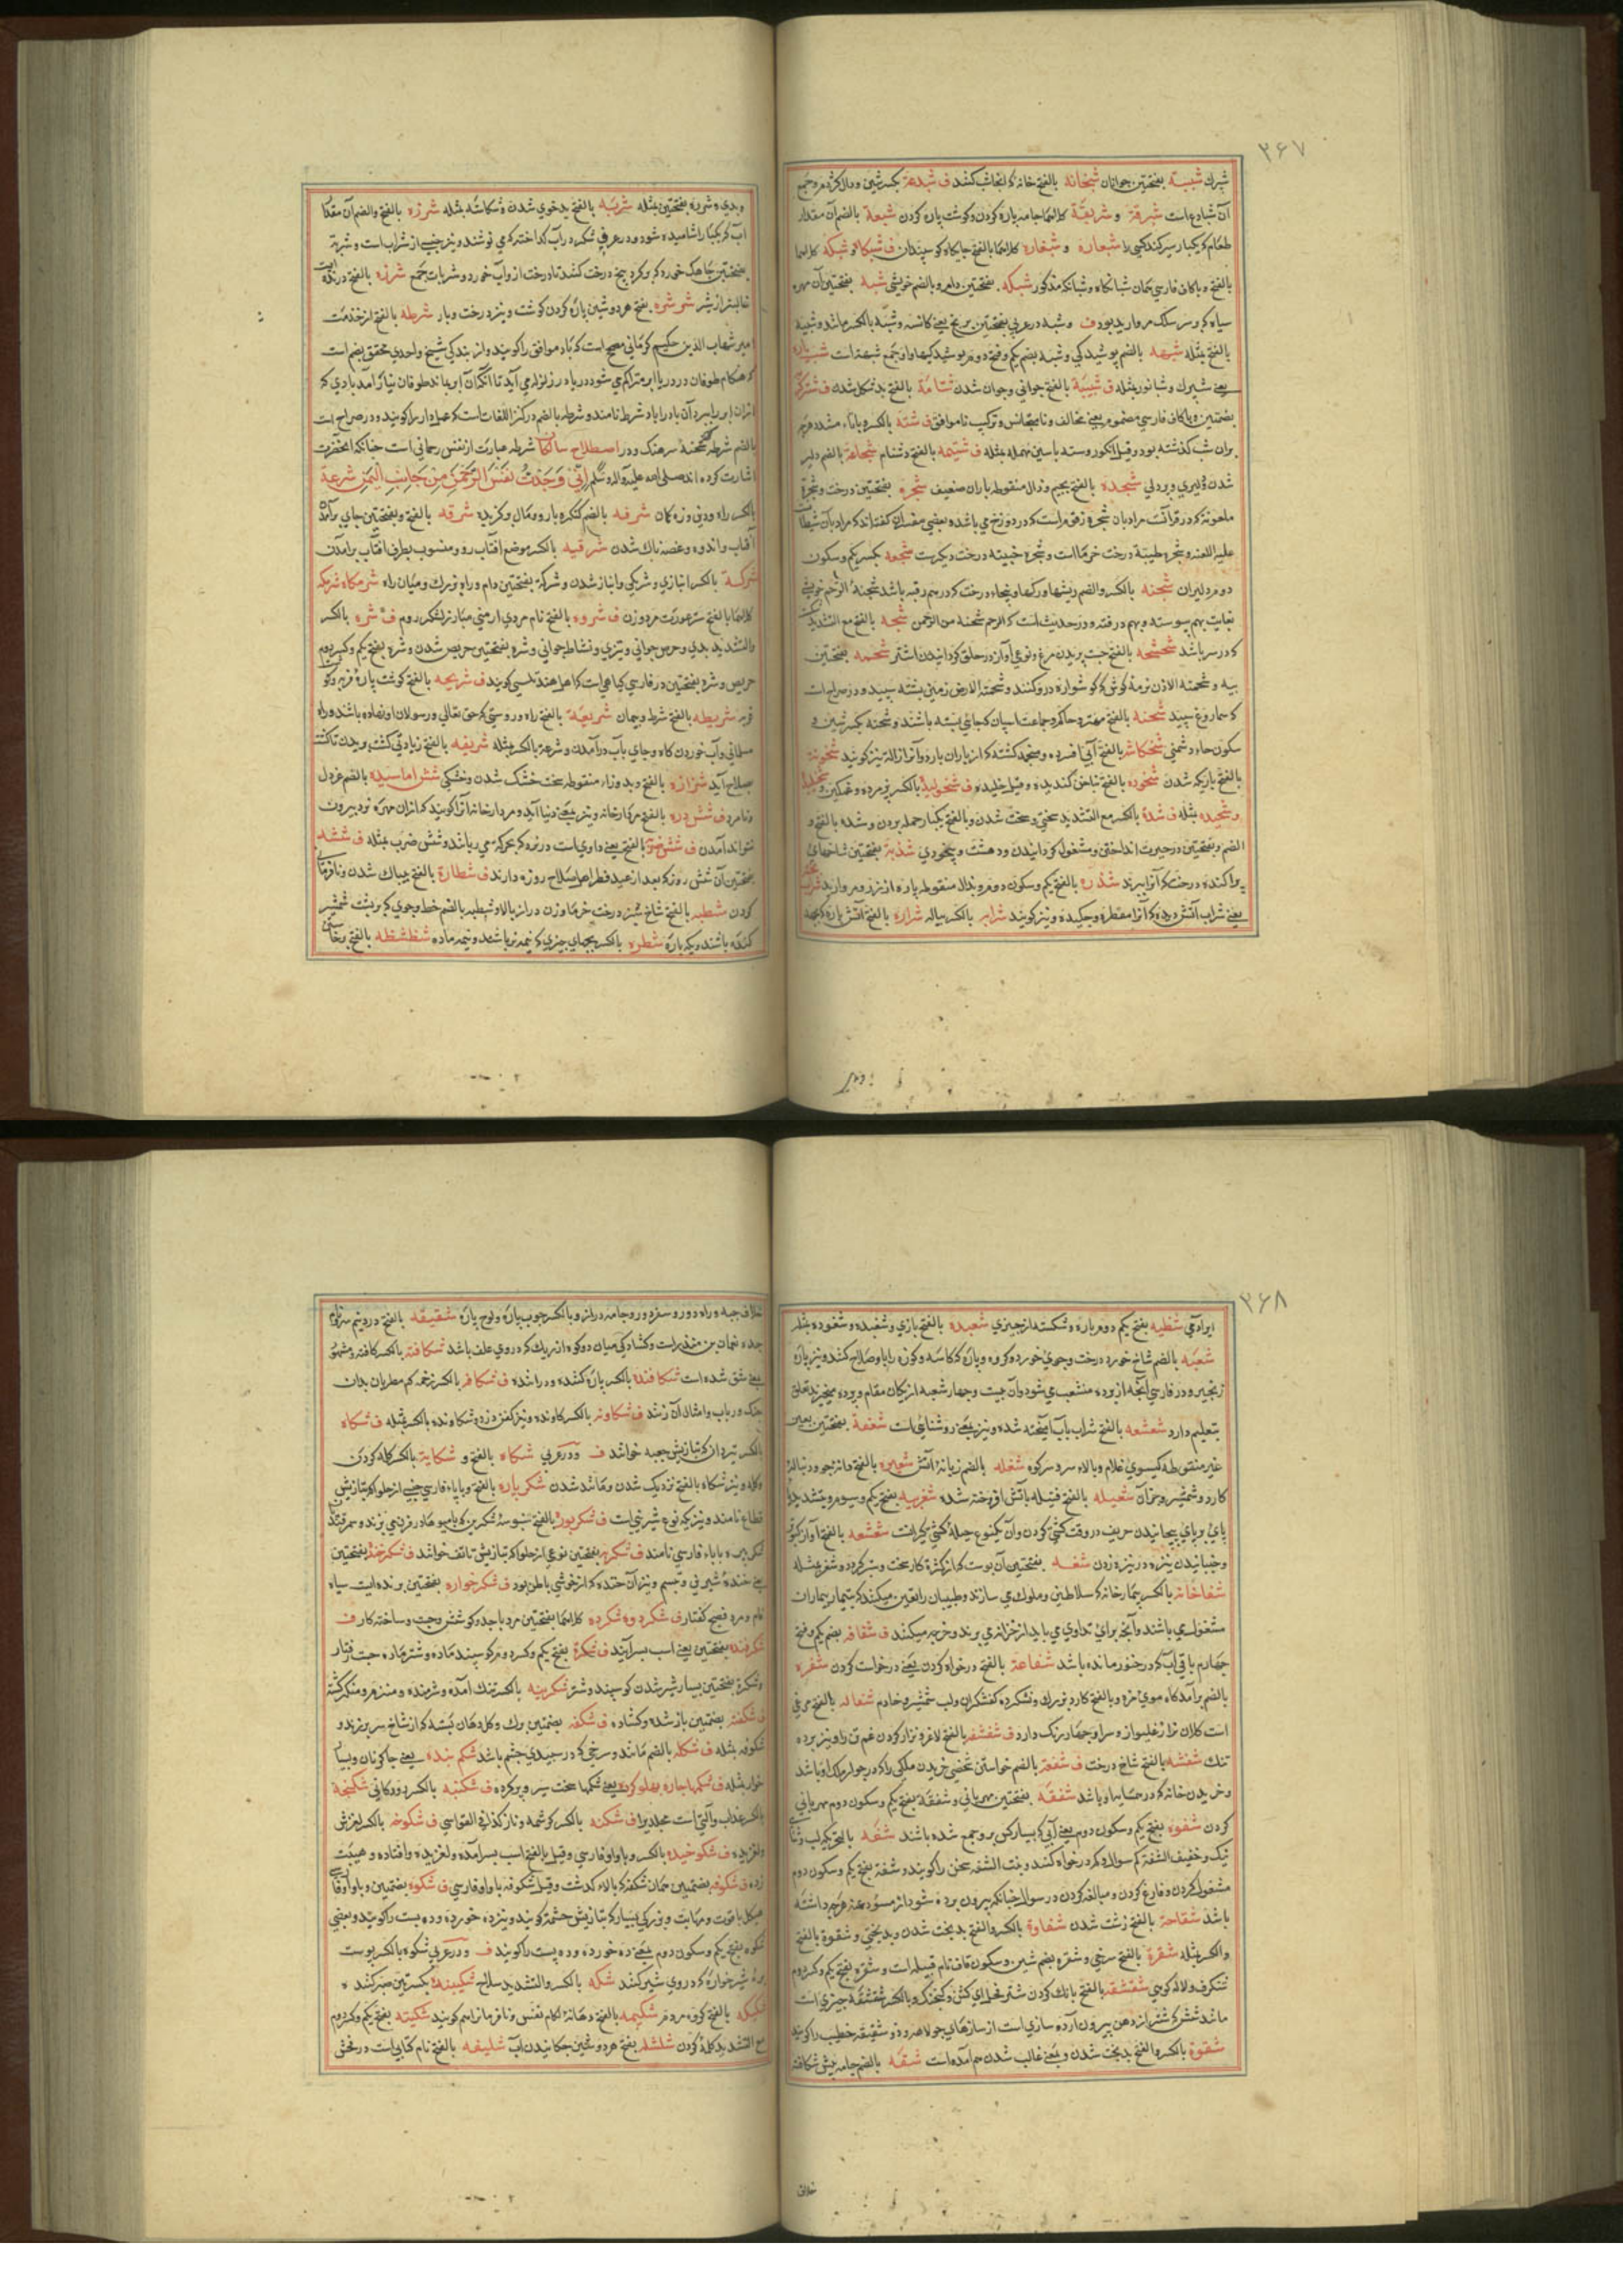 ۳۶۷
شبرك شببة بفتحتين جوانان شبخانه بالفتح خانه كه انجا شب كنند ف شبدعة بكسر شين و دال كژدم و جمع
آن شبادع است شبرقة و شربقة كلاهما جامه پاره كردن و كوشت پاره كردن شبعة بالضم آن مقدار
طعام كه يكبار سير كند كسى را و كلاهما بالفتح جايكاه كوسپندان ف شبكاه و شبكه كلاهما
بالفتح و با كاف فارسي همان شبانكاه و شبانكه مذكور شبكه بفتحتين دام و بالضم خويشى شبه بفتحتين آن مهره
سياه كه در سلك مرواريد بود ف و شبه در عربي بفتحتين برنج يعني كانسه و شبه بالكسر مانند و شبيه
بالفتح مثله شبهه بالضم پوشيدكي و شبه بضم يكم و فتح دوم پوشيدكيها و او جمع شبهة است
يعني شپرك و شبانور مثله ف شبيبة بالفتح جواني و جوان شدن شتامة بالفتح بد شكل شدن
بضمتين و با كاف فارسي مضموم يعني مخالف و نامتجانس و تركيب ناموافق ف شته بالكسر و با تاء مشدد هرچه
بران شب كذشته بود و قيل انكور و سته با سين مهمله مثله ف شتيمة بالفتح دشنام شجاعة بالضم دلير
شدن و دليري و پردلي شجذة بالفتح بجيم و ذال منقوطه باران ضعيف شجره بفتحتين درخت و شجرة
ملعونة كه در قرآنست مراد بان شجره زقوم است كه در دوزخ مي باشد و بعضي مفسران كفته اند كه مراد بآن شيطان
عليه اللعنه و شجره طيبة درخت خرماست و شجره خبيثه درخت ديكرست شجعه بكسر يكم و سكون
دوم دليران شجنه بالكسر و الضم ريشها و ركها و شاخهاء درخت كه در هم رفته باشد شجنة الرحم خويشي
بغايت بهم پيوسته و بهم در رفته و در حديث است كه الرحم شجنة من الرحمن شجه بالفتح مع التشديد
كه در سر باشد شحشحه بالفتح جست پريدن مرغ و نوعي آواز در حلق كردانيدن اشتر شحمه بفتحتين
پيه و شحمة الاذن نرمة كوش كه كوشواره درو كنند و شحمة الارض زميني پشته سپيد و در صراح است
كه سماروغ سپيد شحنه بالفتح مهتر و حاكم و جماعت اسپان كه جائي بسته باشند و شحنه بكسر شين و
سكون حاء دشمني شخكاسه بالفتح آبي افسرده و منجمد كشته كه از باران بارد و آنرا ژاله نيز كويند
بالفتح باريكه شدن شخوده بالفتح بناخن كنديده و قيل خليده ف بالكسر پژمرده و غمكين
و شخيده مثله ف شدة بالكسر مع التشديد سختي و سخت شدن و بالفتح يكبار حمله بردن و شده بالفتح و
الضم و بفتحتين در حيرت انداختن و مشغول كردانيدن و دهشت و بيخودي شذبة بفتحتين شاخهاي
پراكنده درخت كه آنرا ببرند شذره بالفتح يكم و سكون دوم و بذال منقوطه پاره از زر و مرواريد
يعني شراب آتش ديده كه آنرا مقطر و چكيده و نيز كويند شرابه بالكسر پياله شرارة بالفتح آتش پاره كه بجهد
و بدي و شرره بفتحتين مثله شربة بالفتح بدخوي شدن و شكاسته مثله شرزه بالفتح و الضم آن مقدار
آب كه يكبار اشاميده شود و در عرف شكر در آب كداخته كه مي نوشند و نيز جنسي از شراب است و شربة
بفتحتين چاهك خورد كه بر كرد بيخ درخت كنند تا درخت از و آب خورد و شربات جمع شرزه بالفتح درنده
غالبتر از شير شرشره بفتح هر دو شين پاره كردن كوشت و نيز درخت و بار شرطه بالفتح از خدمت
امير شهاب الدين حكيم كرماني مصحح است كه باد موافق را كويند و از بندكي شيخ واحدي محقق بضم است
كه هنكام طوفان در دريا ابر متراكم مي شود و دريا در زلزله مي آيد تا انكه آن ابر بماند طوفان نيارامد بادي كه
آنران ابر را ببرد آن باد را باد شرط نامند و شرطه بالضم در كنز اللغات است كه عمل دار را كويند و در صراح است
بالضم شرطه شحنه سرهنك و در اصطلاح سالكان شرطه عبارت از نفس رحماني است چنانكه آنحضرت
اشارت كرده اند صلى الله عليه و آله وسلم إِنِّي وَجَدْتُ نَفَسَ الرَّحْمٰنِ مِنْ جَانِبِ الْيَمَنِ شرعة
بالكسر راه و دين و زه كمان شرفه بالضم كنكره بارو و مال و كزيده شرقه بالفتح و بفتحتين جاي برآمد
آفتاب و اندوه و غصه ناك شدن شرقيه بالكسر موضع آفتاب رو و منسوب بطرف آفتاب برامدن
شركة بالكسر انبازي و شريكي و انباز شدن و شركة بفتحتين دام و راه بزرك و ميان راه شرمكاه شرمكه
كلاهما بالفتح ستر عورت مرد و زن ف شروه بالفتح نام مردي ارمني مبارز لشكر روم ف شره بالكسر
و التشديد بدي و حرص جواني و تيزي و نشاط جواني و شره بفتحتين حريص شدن و شره بفتح يكم و كسر دوم
حريص و شره بفتحتين در فارسي كياهي است كه اهل هند تلسي كويند ف شريحه بالفتح كوشت پارهٔ فربه و كو
فربه شريطه بالفتح شرط و پيمان شريعة بالفتح راه و روشي كه حق تعالي و رسولان او نهاده باشد و راه
مسلماني و آب خوردن كاه و جاي بآب درآمدن و شرعة بالكسر مثله شريفه بالفتح زيادتي كشت و بريدن تا كشت
بصلاح آيد شزازه بالفتح و بدو زاء منقوطه سخت خشك شدن و خشكي شش اماسيده بالضم غردل
و نامرد ف شش دره بالفتح مردارخانه و نيز بمعني دنيا آيد و مردارخانه آنرا كويند كه ازان مهره نرد بيرون
نتواند آمدن ف بالفتح يعني داوي است در نرد كه بحركه مي ربايند و شش ضرب مثله ف ششه
بفتحتين آن شش روز كه بعد از عيد فطر اهل صلاح روزه دارند ف شطارة بالفتح بيباك شدن و نافرمان
كردن شطبه بالفتح شاخ سبز درخت خرما و زن دراز بالا و شطبه بالضم خط و جوي كه بر پشت شمشير
كنده باشند و يك پاره شطره بالكسر بچهاي چيزي كه نيمه نر باشند و نيمه ماده شظشظه بالفتح برخاستن
۳۶۸
ايراد في شظيه بفتح يكم دوم پاره و شكسته از چيزي شعبده بالفتح بازي و شعبده و شعوذه مثله
شعبه بالضم شاخ خورد درخت و جوي خورد و كروه و پاره كه كاسه و كوزه را با و صلاح كنند و نيز پاره
زنجير و در فارسي آنچه از پرده منشعب مي شود و آن بيست و چهار شعبه از يكان مقام و پرده مي خيزد تعلق
بتعليم دارد شعشعه بالفتح شراب بآب آميخته شده و نيز بمعني روشنائي است شعفة بفتحتين بعين
غير منقوطه كيسوي غلام و بالاء سر و سر كوه شعله بالضم زبانهٔ آتش شعيره بالفتح دانه جو و دنباله
كارد و شمشير و جز آن شعيله بالفتح فتيله بآتش افروخته شده شغربيه بفتح يكم و سوم و بتشديد يا
پاي بر پاي پيچانيدن حريف در وقت كشتي كردن و آن يكنوع حيلهٔ كشتي كيرانست شغشغه بالفتح آواز كردن
و جنبانيدن نيزه در نيزه زدن شغه بفتحتين آن پوست كه از كثرة كار سخت و ستبر كردد و شغر مثله
شفاخانه بالكسر بيمارخانه كه سلاطين و ملوك مي سازند و طبيبان را تعين ميكنند كه بتيمار بيماران
مشغول مي باشند و آنچه براي تداوي مي بايد از خزانه مي برند و خرج ميكنند ف شفافه بضم يكم و فتح
چهارم باقي آب كه در خنور مانده باشد شفاعة بالفتح درخواه كردن يعني درخواست كردن شفره
بالضم برآمدكاه موي مژه و بالفتح كارد بزرك و نشكرده كفشكران و لب شمشير و خادم شفاله بالفتح مرغي
است كلان تر از غليواز و سر او چهار رنك دارد ف شفشفه بالفتح لاغر و نزار كردن غم تن را و نيز برده
تنك شفشه بالفتح شاخ درخت ف شفعه بالضم خواستن شخصي خريدن ملكي را كه در جوار ملك او باشد
و خريدن خانه كه در همسايه او باشد شفقه بفتحتين مهرباني و شفقة بفتح يكم و سكون دوم مهرباني
كردن شفوه بفتح يكم و سكون دوم يعني آبي كه بسيار كس برو جمع شده باشند شفه بالتحريك لب و ثنا
نيك و خفيف الشفة كم سوال و كم درخواه كنند و بنت الشفه سخن را كويند و شفة بفتح يكم و سكون دوم
مشغول كردن و فارغ كردن و مبالغه كردن در سوال چنانكه بيرون برده شود از مسؤد عنه هرچه داشته
باشد شقاحة بالفتح زشت شدن شقاوة بالكسر و الفتح بد بخت شدن و بدبختي و شقوة بالفتح
و الكسر مثله شقرة بالفتح سرخي و شقره بضم شين و سكون قاف نام قبيله است و شقره بفتح يكم و كسر دوم
شنكرف و لاله كوهي شقشقه بالفتح بانك كردن شتر فحل اي كشن و كنجشك و بالكسر شقشقة چيزي است
مانند شش كه شتر از دهن بيرون آرد و سازي است از سازهاي جولاهه و ذو شقشقه خطيب را كويند
شقوة بالكسر و الفتح بدبخت شدن و بمعني غالب شدن هم آمده است شقه بالضم جامه پيش شكافته
خلاف
خلاف جبه و راه دور و سفر دور و جامه دراز و بالكسر چوب پاره و لوح پاره شقيقه بالفتح درد نيم سر و نام
جده نعمان بن منذر است و كشادكي ميان دو كوه از ريك كه دروي علف باشد شكافته بالكسر كافته و مشق
يعني شق شده است شكافنده بالكسر پاره كننده و دراننده ف شكافه بالكسر زخمه كه مطربان بدان
چنك و رباب و امثال آن زنند ف شكاونه بالكسر كاونده و نيز كفن دزد و شكاونده بالكسر مثله ف شكاه
بالكسر تيردان كه بتازيش جعبه خوانند ف و در عربي شكاه بالفتح و شكاية بالكسر كله كردن
و كله و نيز شكاه بالفتح نزديك شدن و مانند شدن شكرپاره بالفتح و با پاء فارسي جنسي از حلوا كه بتازيش
قطاع نامند و نيز يكه نوع شيريني است ف شكربوره بالفتح سنبوسهٔ شكرين كه باميوهاء در روغن مي پزند و سمرقند
شكربيره با باء فارسي نامند ف شكربره بفتحتين نوعي از حلوا كه بتازيش ناطف خوانند ف شكرخنده بفتحتين
يعني خنده شيرين و تبسم و نيز آن خنده كه از خوشي باطن بود ف شكرخواره بفتحتين پرنده ايست سياه
فام و مرد فصيح كفتار ف شكرده و شكرده كلاهما بفتحتين مرد با جد و كوشش و چست و ساخته كار ف
شكرفنده بفتحتين يعني اسب بسرآينده ف شكرة بفتح يكم و كسر دوم كوسپند ماده و شتر ماده چست رفتار
و شكرة بفتحتين بسيار شير شدن كوسپند و شتر بالكسر تنك آمده و شرمنده و منهزم و منكسر كشته
ف شكفته بضمتين باز شده و كشاده ف شكفه بضمتين برك و كل دهان بسته كه از شاخ سر برزند و
شكوفه مثله ف شكله بالضم مانند و سرخي كه در سپيدي چشم باشد شكم بنده يعني چاكر نان و بسيا
خوار مثله ف شكمها جاره بهلو كرده يعني شكمها سخت سير و پر كرده ف شكنبه بالكسر رودكاني شكنجه
بالكسر عذاب و آلتي است مجلد را ف شكنه بالكسر كرشمه و ناز كذا في القواسي ف شكوخه بالكسر لغزش
و لغزيده ف شكوخيده بالكسر و با واو فارسي و قيل بالفتح اسب بسرآمده و لغزيده و افتاده و هيبت
زده ف شكوفه بضمتين همان شكفه كه بالاء كذشت و قيل شكوفه با واو فارسي ف شكوه بضمتين و با واو فا
هيكل با قوت و مهابت و بزركي بسيار كه بتازيش حشمة كويند و نيز ده خورده و ده پست را كويند و يعني
شكوه بفتح يكم و سكون دوم يعني ده خورده و ده پست را كويند ف و در عربي شكوه بالكسر پوست
بره شيرخواره كه دروي شير كنند شكه بالكسر و التشديد سلاح شكيبنده بكسرتين صبر كننده
شكيكه بالفتح كروه مردم شكيمه بالفتح دهانهٔ لكام نفس و نافرمانرا هم كويند شكيته بفتح يكم و كسر دوم
مع التشديد كله كردن شلشله بفتح هر دو شين چكانيدن آب شليفه بالفتح نام كتابي است در فحش